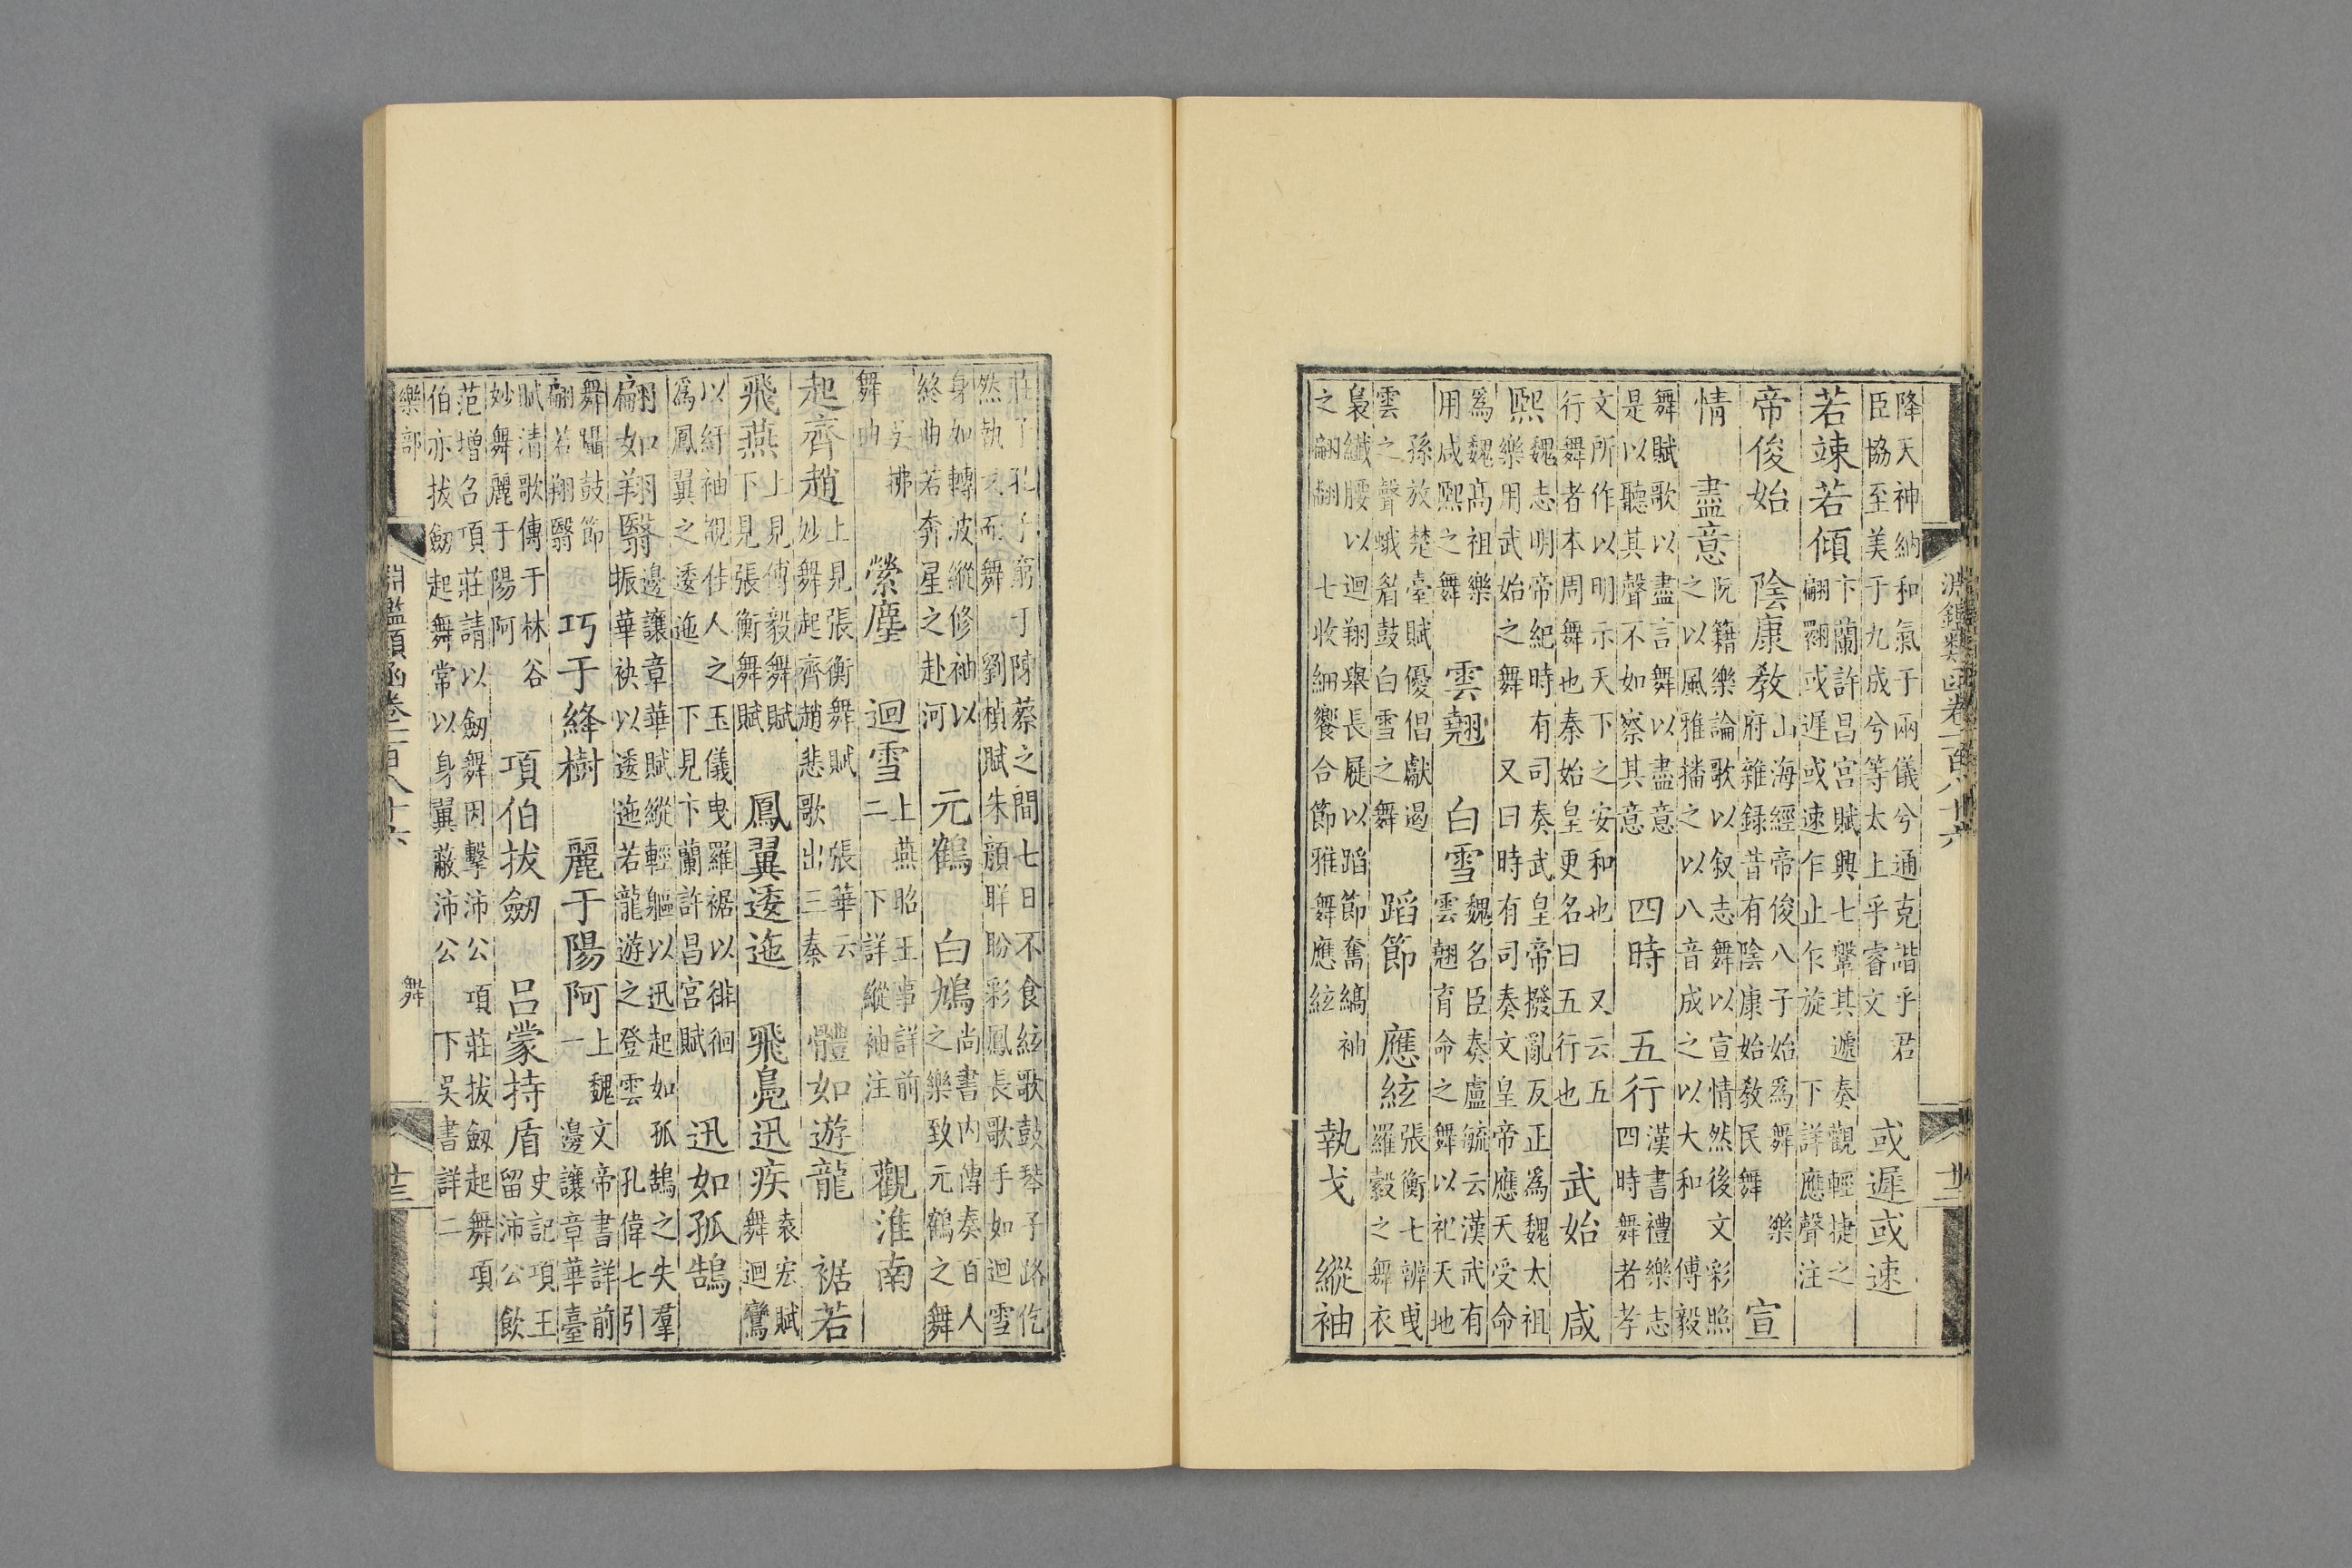 降天神納和氣于兩儀兮通克諧乎君
臣協至美于九成兮等太上乎睿文
或遲或速
若竦若傾
卞蘭許昌宮賦興七鞶其遞奏觀輕捷之
翩翾或遲或速乍止乍旋下詳應聲注
帝俊始
山海經帝俊八子始為舞
陰康教
樂府雜錄昔有陰康始教民舞
宣
情
盡意
阮籍樂論歌以叙志舞以宣情然後文彩照
之以風雅播之以八音成之以大和傅毅
舞賦歌以盡言舞以盡意
是以聽其聲不如察其意
四時
五行
漢書禮樂志
四時舞者孝
文所作以明示天下之安和也又云五
行舞者本周舞也秦始皇更名曰五行也
武始
咸
熙
魏志明帝紀時有司奏武皇帝撥亂反正為魏太祖
樂用武始之舞又曰時有司奏文皇帝應天受命
為魏髙祖樂
用咸熙之舞
雲翹
白雪
魏名臣奏盧毓云漢武有
雲翹育命之舞以祀天地
孫放楚臺賦優倡獻遏
雲之聲蛾睂鼓白雪之舞
蹈節
應絃
張衡七辨曵
羅縠之舞衣
裊纖腰以迴翔舉長屣以蹈節奮縞袖
之翩翩七收細饗合節雅舞應絃
執戈
縱袖
淵鑑類函卷一百八十六
莊子孔子窮于陳蔡之間七日不食絃歌鼓琴子路仡
然執之而舞劉楨賦朱顔眻盼彩鳳長歌手如迴雪
身如轉波縱修袖以
終曲若奔星之赴河
元鶴
白鳩
尚書內傳奏百人
之樂致元鶴之舞
吳拂
舞曲
縈塵
迴雪
上燕昭王事詳前
二下詳縱袖注
觀淮南
起齊趙
上見張衡舞賦張華云
妙舞起齊趙悲歌出三秦
體如遊龍
裾若
飛燕
上見傅毅舞賦
下見張衡舞賦
鳳翼逶迤
飛鳧迅疾
袁宏賦
舞迴鸞
以紆袖覩佳人之玉儀曳羅裾以徘徊
為鳳翼之逶迤下見卞蘭許昌宮賦
迅如孤鵠
翩如翔翳
邊讓章華賦縱輕軀以迅起如孤鵠之失羣
振華袂以逶迤若龍遊之登雲孔偉七引
舞躡鼓節
翩若翔翳
巧于絳樹
麗于陽阿
上魏文帝書詳前
一邊讓章華臺
賦清歌傳于林谷
妙舞麗于陽阿
項伯拔劒
呂蒙持盾
史記項王
留沛公飲
范增召項莊請以劒舞因擊沛公項莊拔劒起舞項
伯亦拔劒起舞常以身翼蔽沛公下吳書詳二
樂部
舞
淵鑑類函卷一百八十六